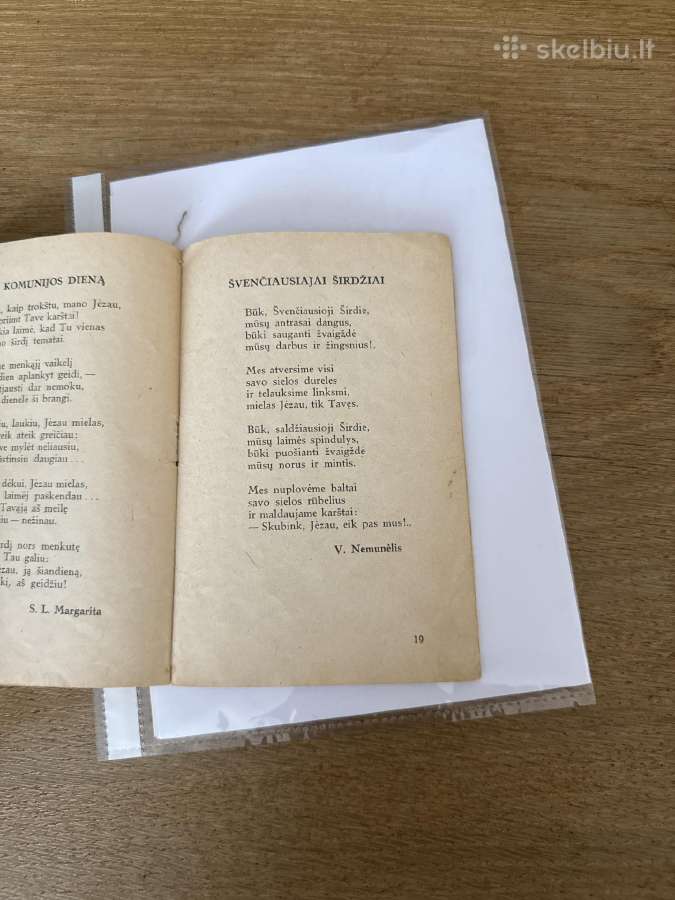 skelbiu.lt
KOMUNIJOS DIENĄ
kaip trokštu, mano Jėzau,
Tave karštai!
laimė, kad Tu vienas
širdį tematai.
menkąjį vaikelį
aplankyt geidi, —
dar nemoku,
dienelė ši brangi.
laukiu, Jėzau mielas,
ateik greičiau:
mylėt neliausiu,
daugiau...
dėkui, Jėzau mielas,
laimėj paskendau...
Tavąja aš meilę
— nežinau.
nors menkutę
Tau galiu:
ją šiandieną,
aš geidžiu!
S. L. Margarita
ŠVENČIAUSIAJAI ŠIRDŽIAI
Būk, Švenčiausioji Širdie,
mūsų antrasai dangus,
būki sauganti žvaigždė
mūsų darbus ir žingsnius!.
Mes atversime visi
savo sielos dureles
ir telauksime linksmi,
mielas Jėzau, tik Tavęs.
Būk, saldžiausioji Širdie,
mūsų laimės spindulys,
būki puošianti žvaigždė
mūsų norus ir mintis.
Mes nuplovėme baltai
savo sielos rūbelius
ir maldaujame karštai:
— Skubink, Jėzau, eik pas mus!..
V. Nemunėlis
19